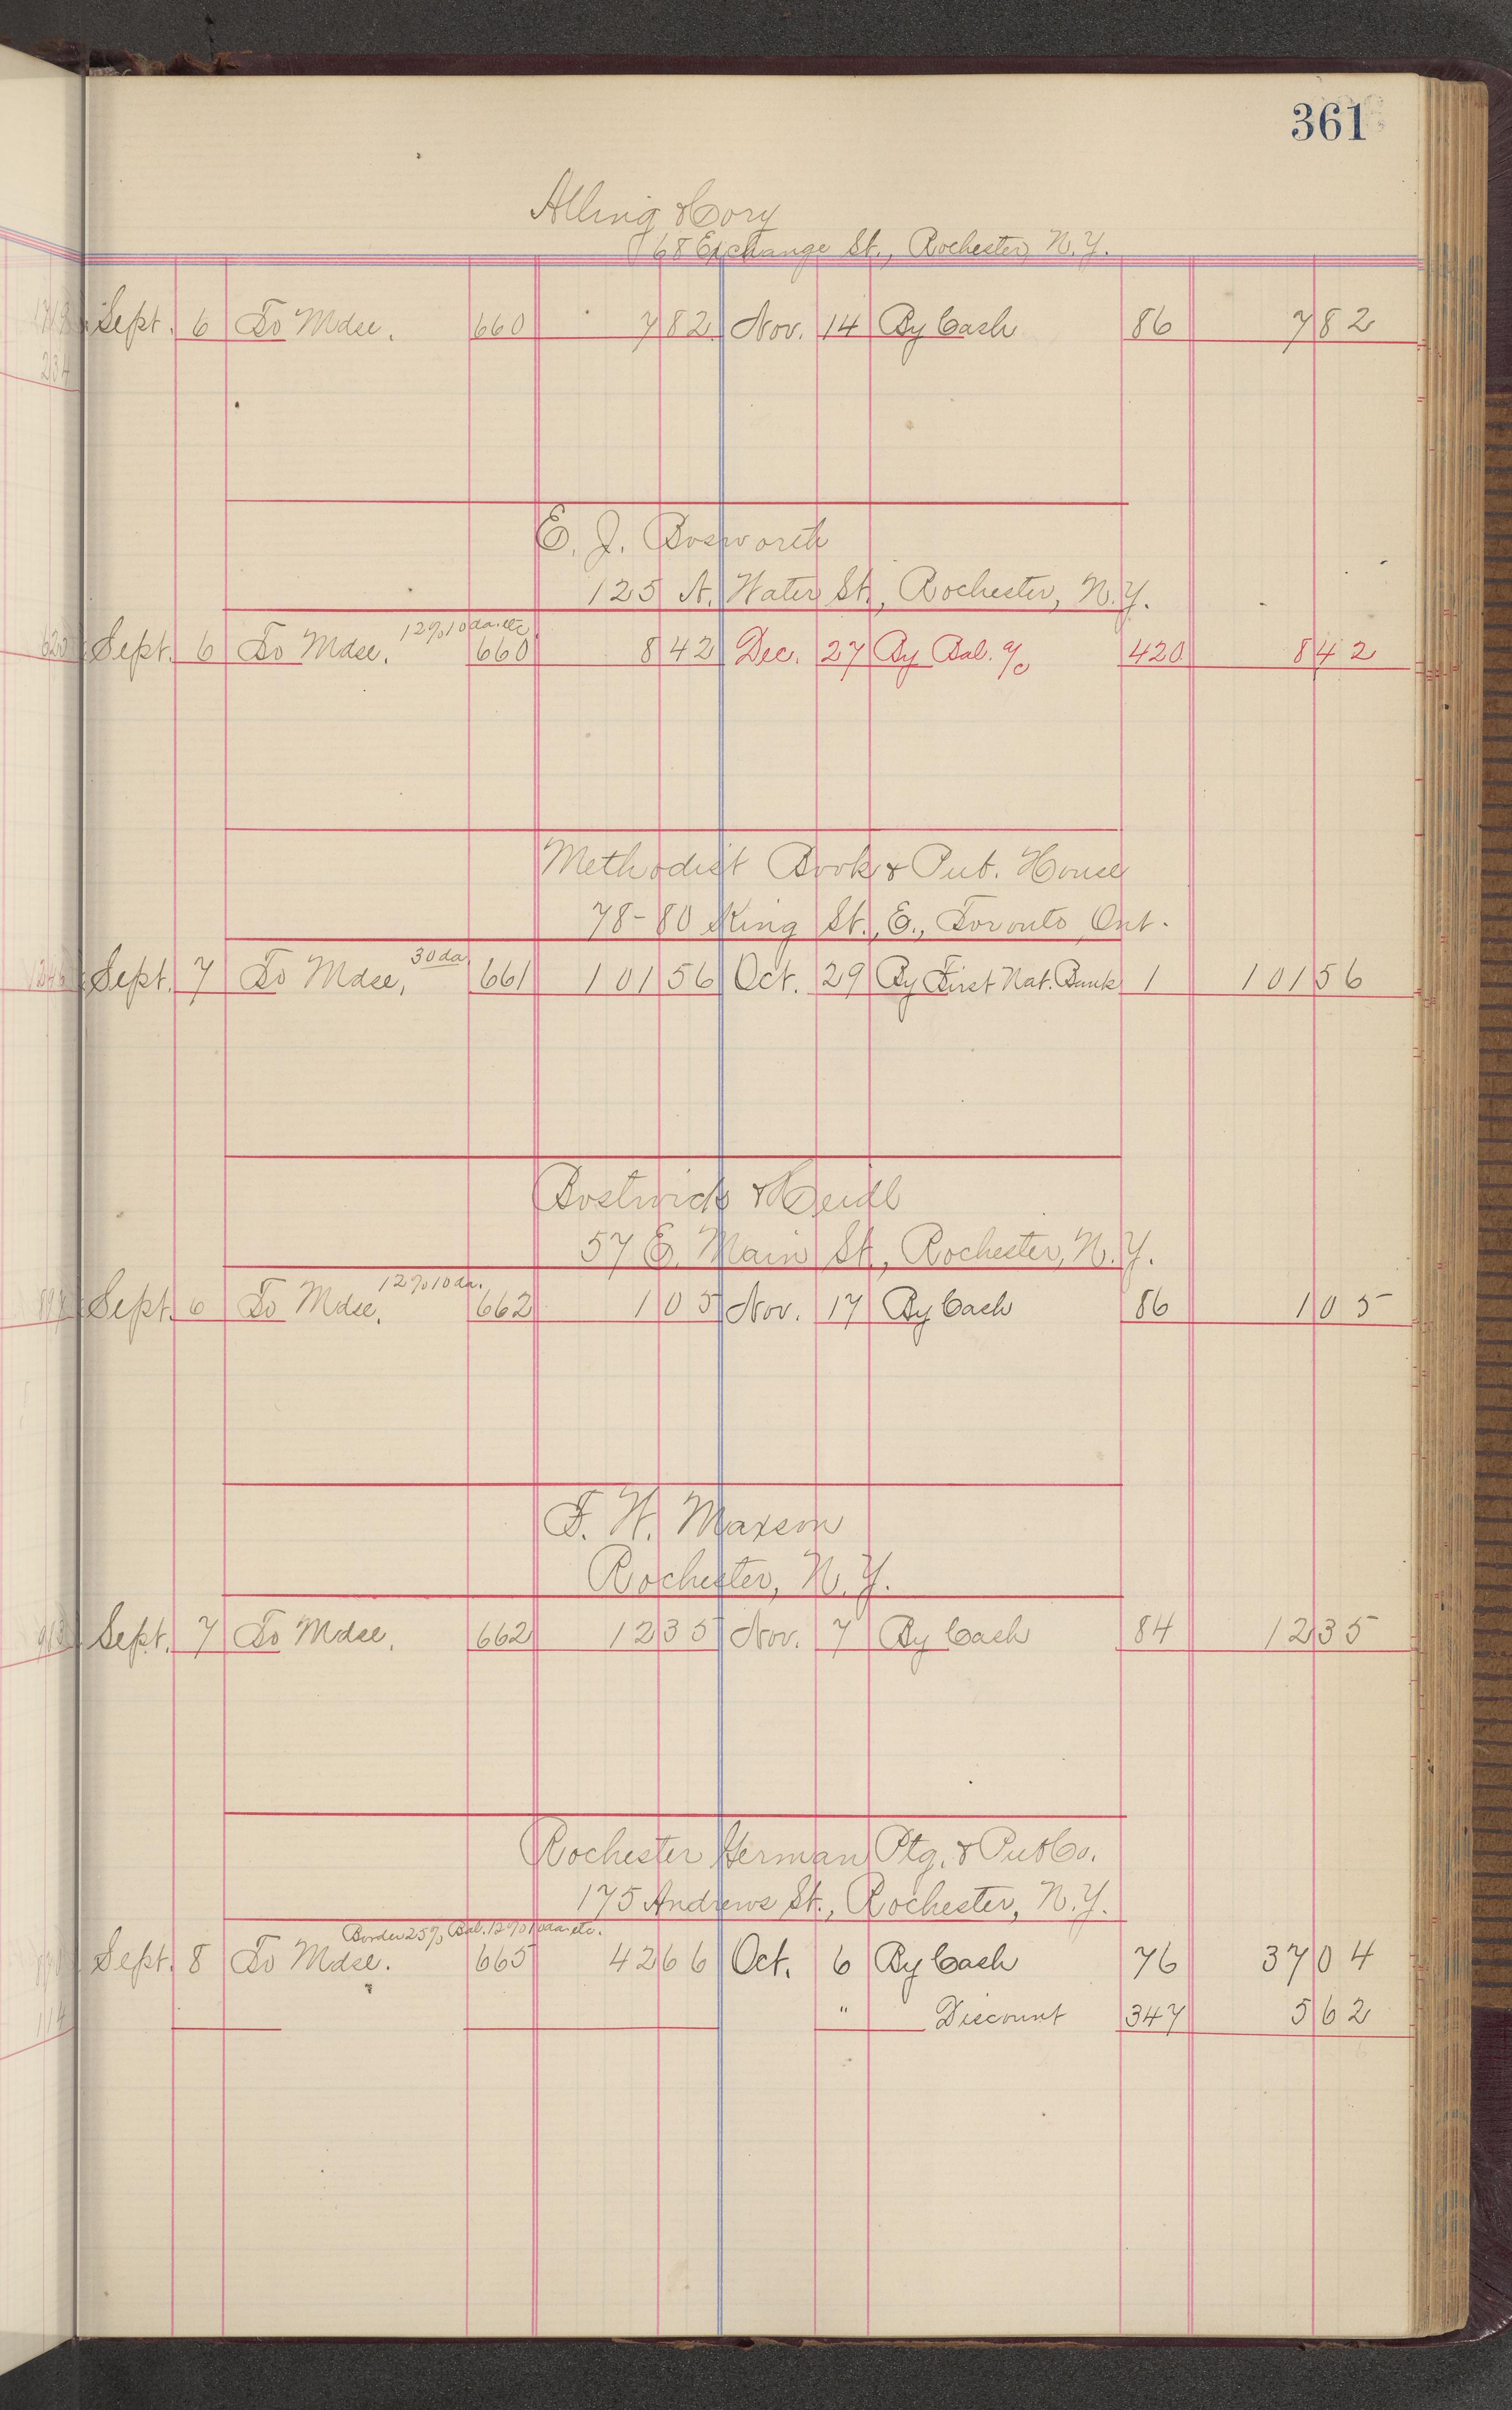 361
Alling & Cory
68 Exchange St., Rochester, N.Y.
Sept. 6 To Mdse. 660 7 82 Nov. 14 By Cash 86 7 82
234
E. J. Bosworth
125 N. Water St., Rochester, N.Y.
12% 10 da. etc.
Sept. 6 To Mdse. 660 8 42 Dec. 27 By Bal. a/c 420 8 42
Methodist Book & Pub. House
78-80 King St., E., Toronto, Ont.
30 da
Sept. 7 To Mdse, 661 101 56 Oct. 29 By First Nat. Bank 1 101 56
Bostwick &
57 E. Main St., Rochester, N.Y.
12% 10 da.
Sept. 6 To Mdse. 662 1 05 Nov. 17 By Cash 86 1 05
F. W. Maxson
Rochester, N.Y.
Sept. 7 To Mdse. 662 12 35 Nov. 7 By Cash 84 12 35
Rochester German Ptg. & Pub Co.
175 Andrews St., Rochester, N.Y.
Border 25%, Bal. 12% 10 da. etc.
Sept. 8 To Mdse. 665 42 66 Oct. 6 By Cash 76 37 04
" Discount 347 5 62